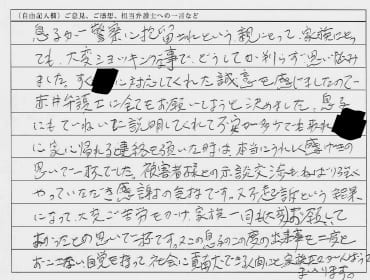 (自由記入欄)ご意見、ご感想、担当弁護士への一言など
息子が警察に拘留されたという親にとって、家族にとっ
ても、大変ショッキングな事で、どうしてか判らず思い悩み
ました。すぐに対応してくれた誠意を感じましたので
弁護士に全てをお願いしようと決めました。息子
にもていねいに説明してくれて不安が多少でも
に家に帰れる連絡を頂いた時は、本当にうれしく感謝の
思いで一杯でした。被害者様との示談交渉もねばり強く
やっていただき感謝の気持です。又不起訴という結果
になって、大変ご苦労をかけ、家族一同
あったとの思いで一杯です。又この息子のこの度の出来事を二度と
おこさない自覚を持って、社会に真面目で
まいります。